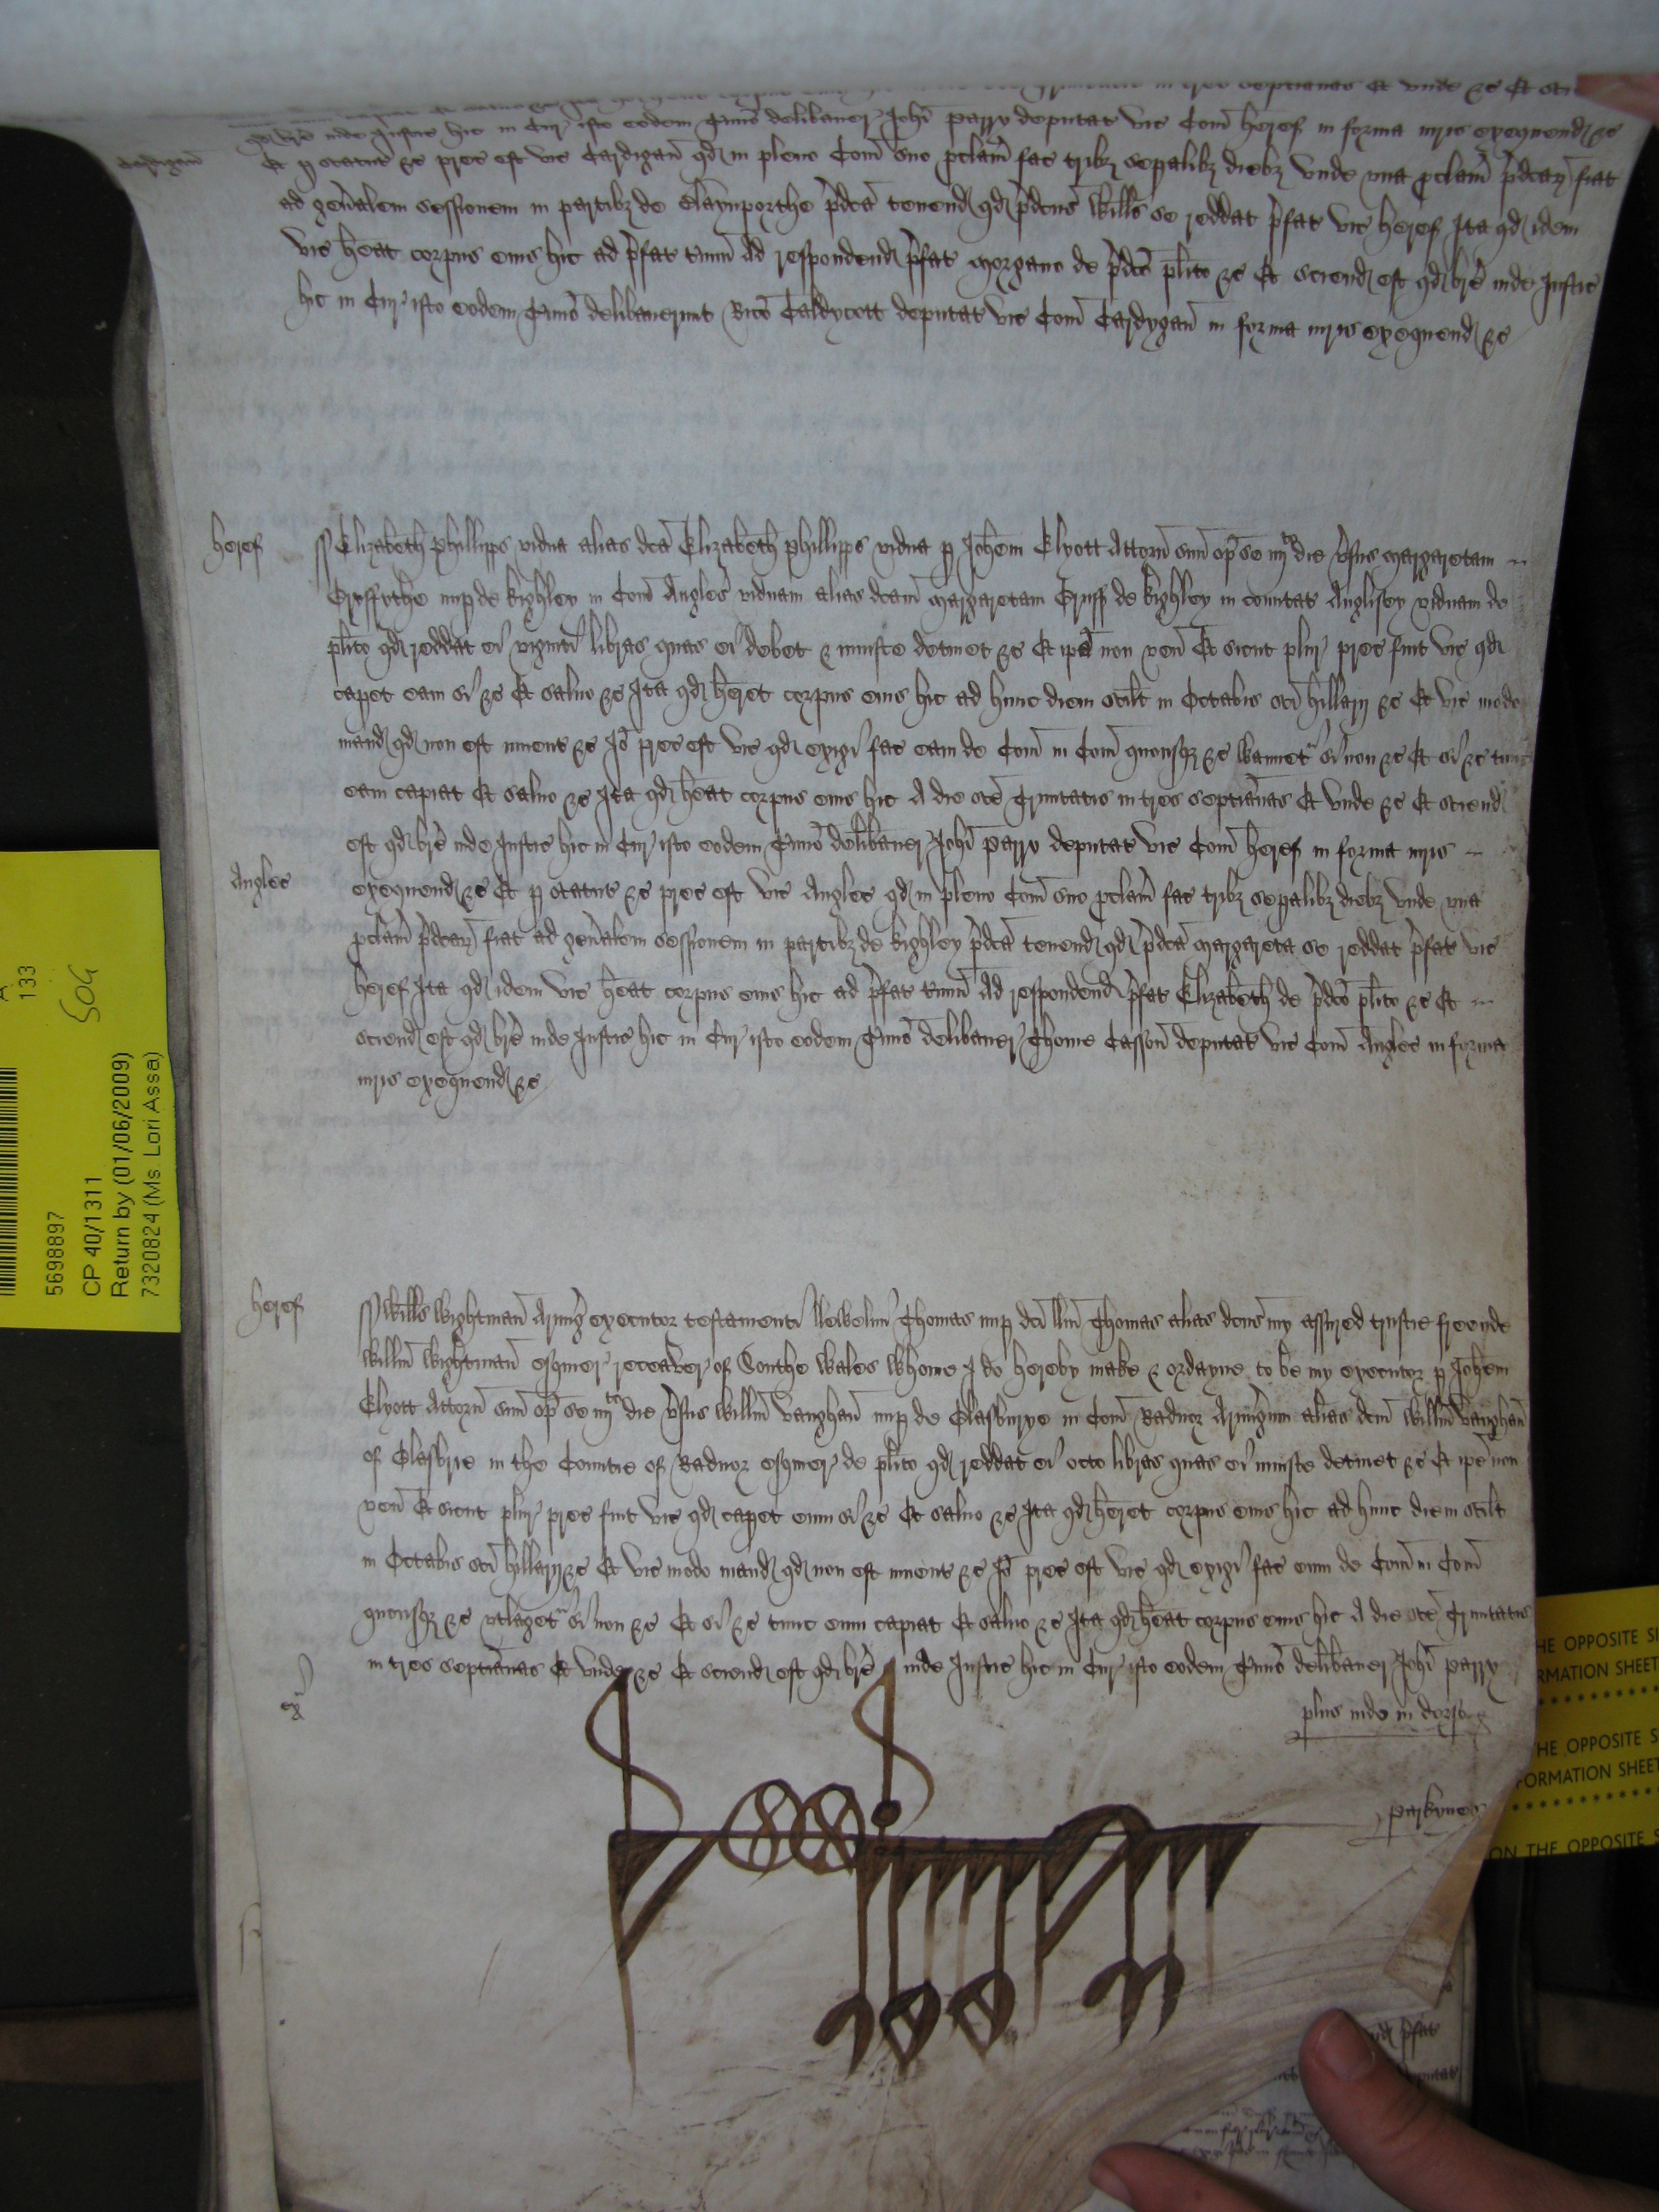 qd bre inde Justic hic in Cur isto eodem Timo delibauer Johi Parry deputat vic Com Heref in forma iuris exequend &c
Cardigan
Et p statut &c prec est vic Cardigan qd in pleno Com suo pclam fac tribz sepalibz diebz vnde vna pclam pdcaz fiat
ad genalem sessionem in partibz de pdca tenend qd pdcus Wills se reddat pfat vic Heref Ita qd idem
vic heat corpus eius hic ad pfat Tmin Ad respondend pfat Morgano de pdco plito &c Et sciend est qd bre inde Justic
hic in Cur isto eodem Timo delibauerunt Rico Caldycott deputat vic Com Cardygan in forma iuris exequend &c
Heref
Elizabeth Phillipps vidua alias dca Elizabeth Phillipps vidua p Johem Elyott Attorn suu op se iiijto die vsus Margaretam
Gryffythe nup de Kighley in Com Angles viduam alias dcam Margaretam Gruff de Kighley in comitat Anglisey viduam de
plito qd reddat ei viginti libras quas ei debet & iniuste detinet &c Et ipa non ven Et sicut plur prec fuit vic qd
capet eam si &c Et saluo &c Ita qd heret corpus eius hic ad hunc diem scilt in Octabis sci Hillarij &c Et vic modo
mand qd non est inuent &c Io prec est vic qd exigi fac eam de Com in Com quousqz &c Waniet si non &c Et si &c tunc
eam capiat Et saluo &c Ita qd heat corpus eius hic A die sce Trinitatis in tres septianas Et vnde &c Et sciend
est qd bre inde Justic hic in Cur isto eodem Timo delibauer Johi Parry deputat vic Com Heref in forma iuris
Angles
exequend &c Et p statut &c prec est vic Angles qd in pleno Com suo pclam fac tribz sepalibz diebz vnde vna
pclam pdcaz fiat ad genalem sessionem in partibz de Kighley pdca tenend qd pdca Margareta se reddat pfat vic
Heref Ita qd idem vic heat corpus eius hic ad pfat Tmin Ad respondend pfat Elizabeth de pdco plito &c Et
sciend est qd bre inde Justic hic in Cur isto eodem Timo delibauer Thome Casson deputat vic Com Angles in forma
iuris exequend &c
Heref
Wills Wightman Armig executor testamenti llewelini Thomas nup dci llini Thomas alias dcus my assured trustie freende
Willm Wightman esquier receaver of Southe Wales Whome I do hereby make & ordayne to be my executor p Johem
Elyott Attorn suu op se iiijto die vsus Willm Vaughan nup de Glasburye in Com Radnor Armigum alias dcm Willm Vaughan
of Glasbrie in the Countie of Radnor esquier de plito qd reddat ei octo libras quas ei iniuste detinet &c Et ipe non
ven Et sicut plur prec fuit vic qd capet eum si &c Et saluo &c Ita qd heret corpus eius hic ad hunc diem scilt
in Octabis sci Hillarij &c Et vic modo mand qd non est inuent &c Io prec est vic qd exigi fac eum de Com in Com
quousqz &c vtlaget si non &c Et si &c tunc eum capiat Et saluo &c Ita qd heat corpus eius hic A die sce Trinitatis
in tres septianas Et vnde &c Et sciend est qd bre inde Justic hic in Cur isto eodem Timo delibauer Johi Parry
ex
plus inde in dorso
Parkynes
133
SOG
5698897
CP 40/1311
Return by (01/06/2009)
7320824 (Ms Lori Assa)
HE OPPOSITE SI
RMATION SHEET
HE OPPOSITE S
FORMATION SHEE
ON THE OPPOSITE S